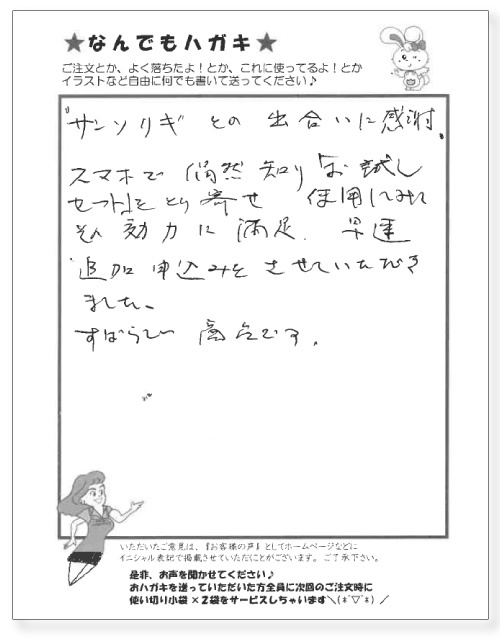 ★なんでもハガキ★
ご注文とか、よく落ちたよ！とか、これに使ってるよ！とか
イラストなど自由に何でも書いて送ってください♪
『サンソリギ との 出合いに感謝』
スマホで 偶然 知り「お試し
セット」をとり寄せ 使用してみて
その 効力 に 満足。早速
追加 申込みを させていただき
ました。
すばらしい 商品です。
いただいたご意見は、『お客様の声』としてホームページなどに
イニシャル表記で掲載させていただくことがございます。ご了承下さい。
是非、お声を聞かせてください♪
おハガキを送っていただいた方全員に次回のご注文時に
使い切り小袋×2袋をサービスしちゃいます＼(*ﾟ▽ﾟ*)／